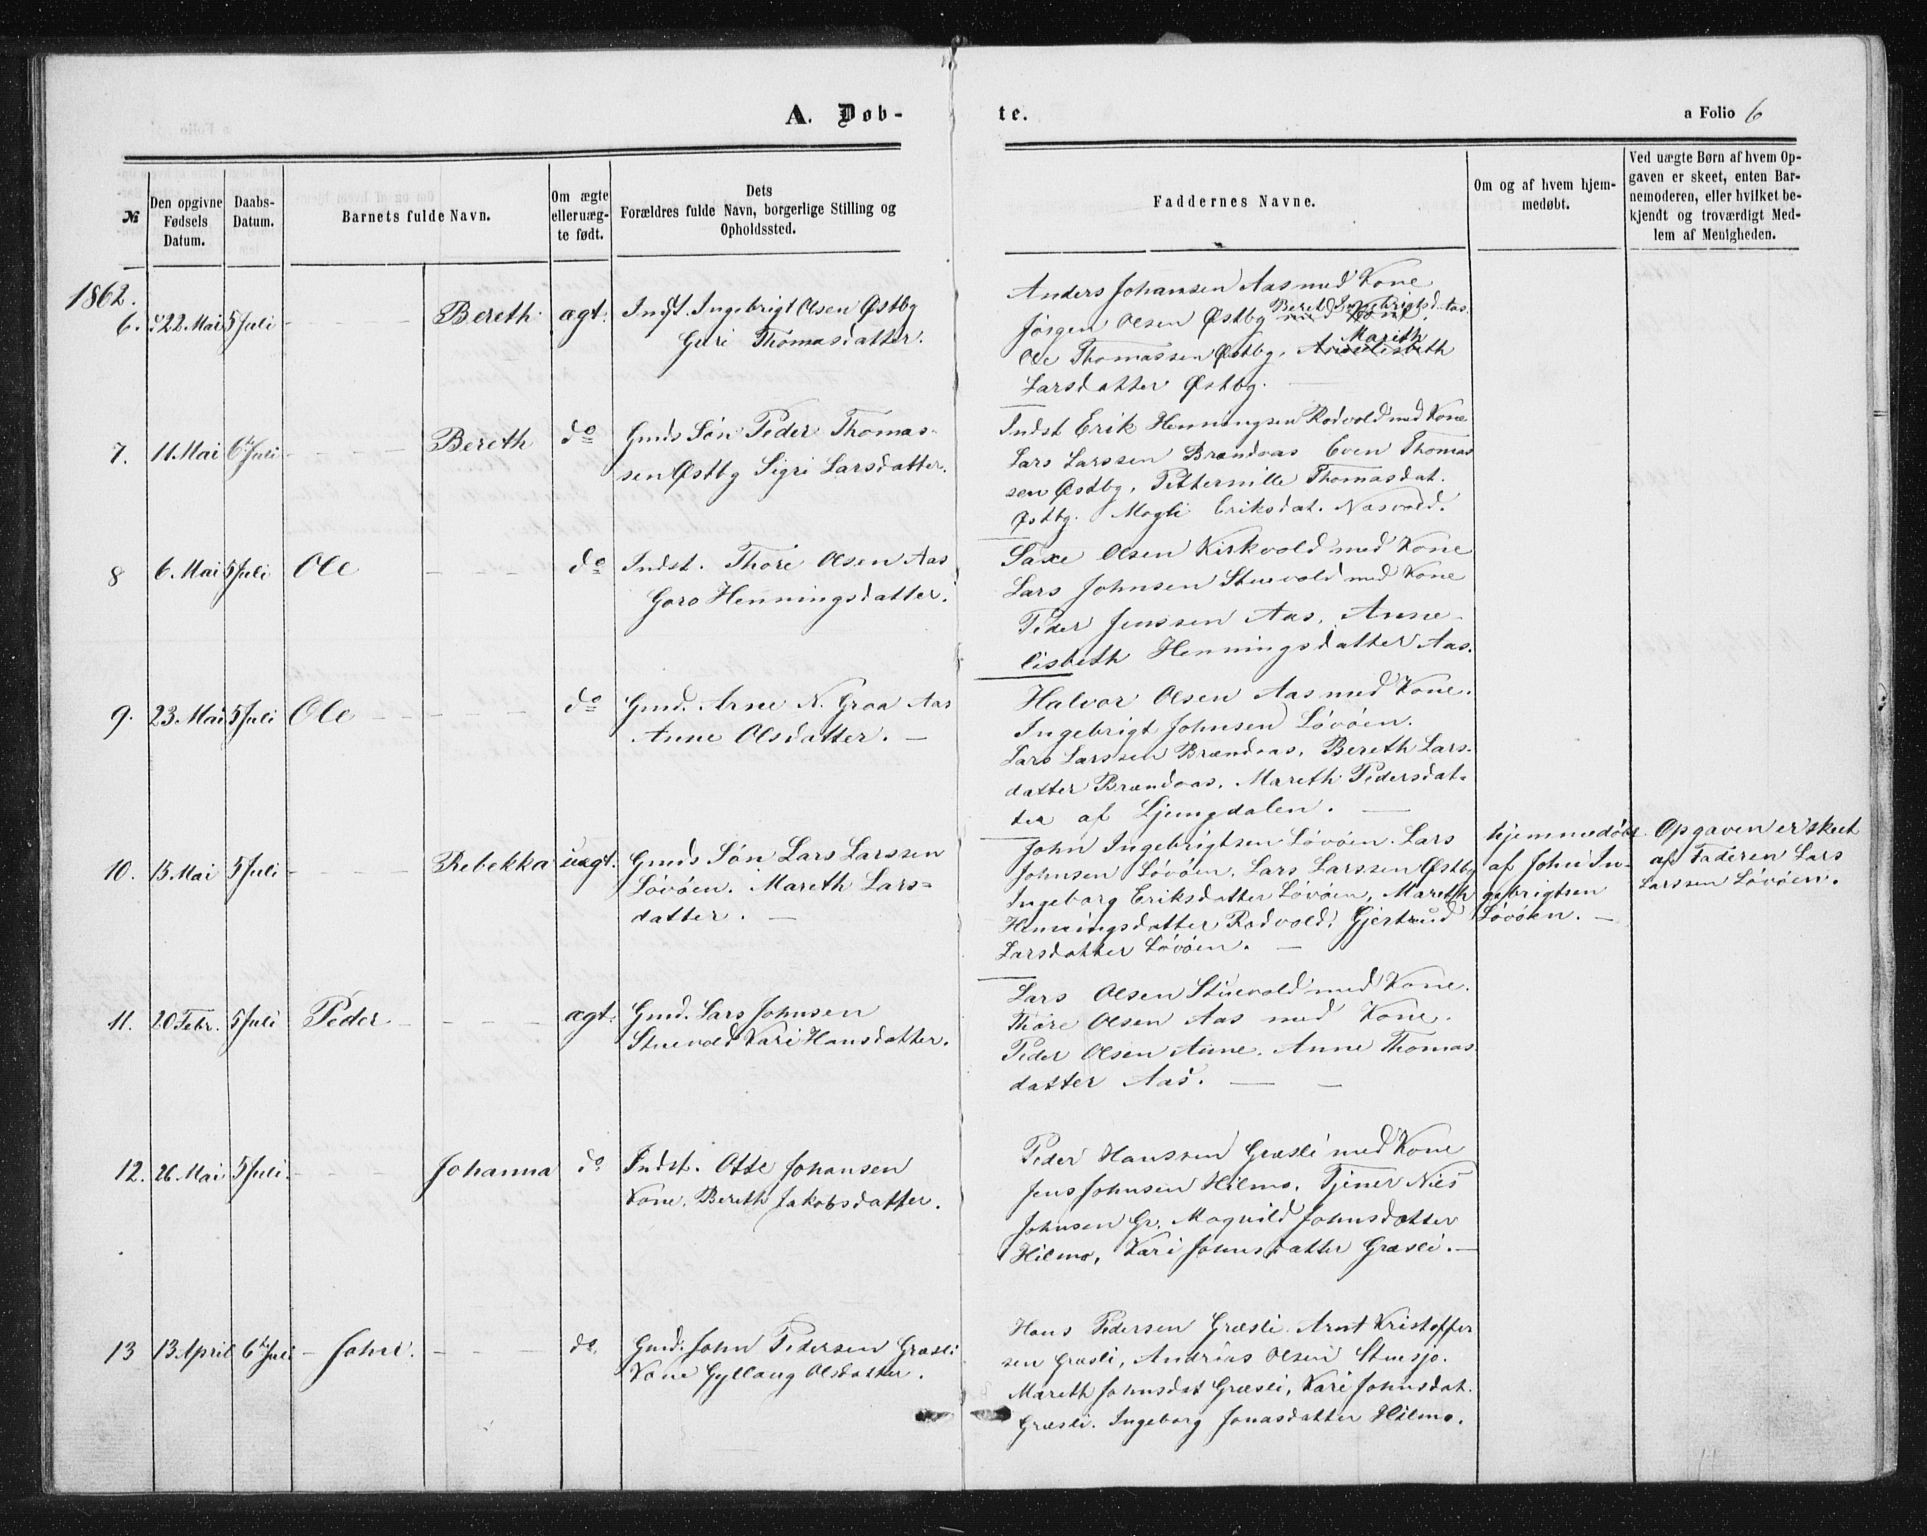 A. Døb-
te.
a Folio 6
№
Den opgivne Fødsels Datum.
Daabs-Datum.
Barnets fulde Navn.
Om ægte elleruæg-te født.
Dets
Forældres fulde Navn, borgerlige Stilling og
Opholdssted.
Faddernes Navne.
Om og af hvem hjem-
medøbt.
Ved uægte Børn af hvem Op-
gaven er skeet, enten Bar-
nemoderen, eller hvilket be-
kjendt og troværdigt Med-
lem af Menigheden.
1862.
6. 22 Mai 5 Juli Bereth ægt. Indst. Ingebrigt Olsen Østby
Guri Thomasdatter.
Anders Johansen Aas med Kone
Jørgen Olsen Østby
Ole Thomassen Østby, Mareth
Larsdatter Østby.
7. 11 Mai 6te Juli Bereth do Gmds Søn Peder Thomas-
sen Østby Sigri Larsdatter.
Indst Erik Henningsen Rodvold med Kone
Lars Larssen Brændaas Even Thomas
sen Østby, Petternille Thomasdat.
Østby. Magli Eriksdat. Næsvold.
8 6. Mai 5 Juli Ole do Indst. Thore Olsen Aas
Goro Henningsdatter.
Saxe Olsen Kirkvold med Kone
Lars Johnsen Stuevold med Kone
Peder Jenssen Aas, Anne
lisbeth Henningsdatter Aas.
9. 23 Mai 5 Juli Ole do Gmd. Arne N. Groa Aas
Anne Olsdatter.
Halvor Olsen Aas med Kone.
Ingebrigt Johnsen Løvøen.
Lars Larssen Brændaas, Bereth Lars-
datter Brændaas, Mareth Pedersdat-
ter af Ljungdalen.
10. 15 Mai 5 Juli Rebekka uægt. Gmds Søn Lars Larssen
Løvøen. Mareth Lars-
datter.
John Ingebrigtsen Løvøen. Lars
Johnsen Løvøen, Lars Larssen Østby
Ingeborg Eriksdatter Løvøen, Mareth
Henningsdatter Rodvold, Gjertrud
Larsdatter Løvøen.
hjemmedøbt
af John In-
gebrigtsen
Løvøen.
Opgaven er skeet
af Faderen Lars
Larssen Løvøen.
11. 20 Febr. 5 Juli Peder ægt. Gmd. Lars Johnsen
Stuevold Kari Hansdatter.
Lars Olsen Stuevold med Kone.
Thore Olsen Aas med Kone.
Peder Olsen Aune. Anne Thomas
datter Aas.
12. 26 Mai 5 Juli. Johanna do Indst. Otte Johansen
Kone. Bereth Jakobsdatter.
Peder Hanssen Græsli med Kone
Jens Johnsen Hilmo, Tjener Nils
Johnsen Gr. Magnild Johnsdatter
Hilmo, Kari Johnsdatter Græsli.
13 13 April 6te Juli John. do. Gmd. John Pedersen Græsli
Kone Gyllaug Olsdatter.
Hans Pedersen Græsli. Arnt Kristoffer
sen Græsli, Andreas Olsen Stuesjo.
Mareth Johnsdat Græsli, Kari Johnsdat.
Græsli. Ingeborg Jonasdatter Hilmo.